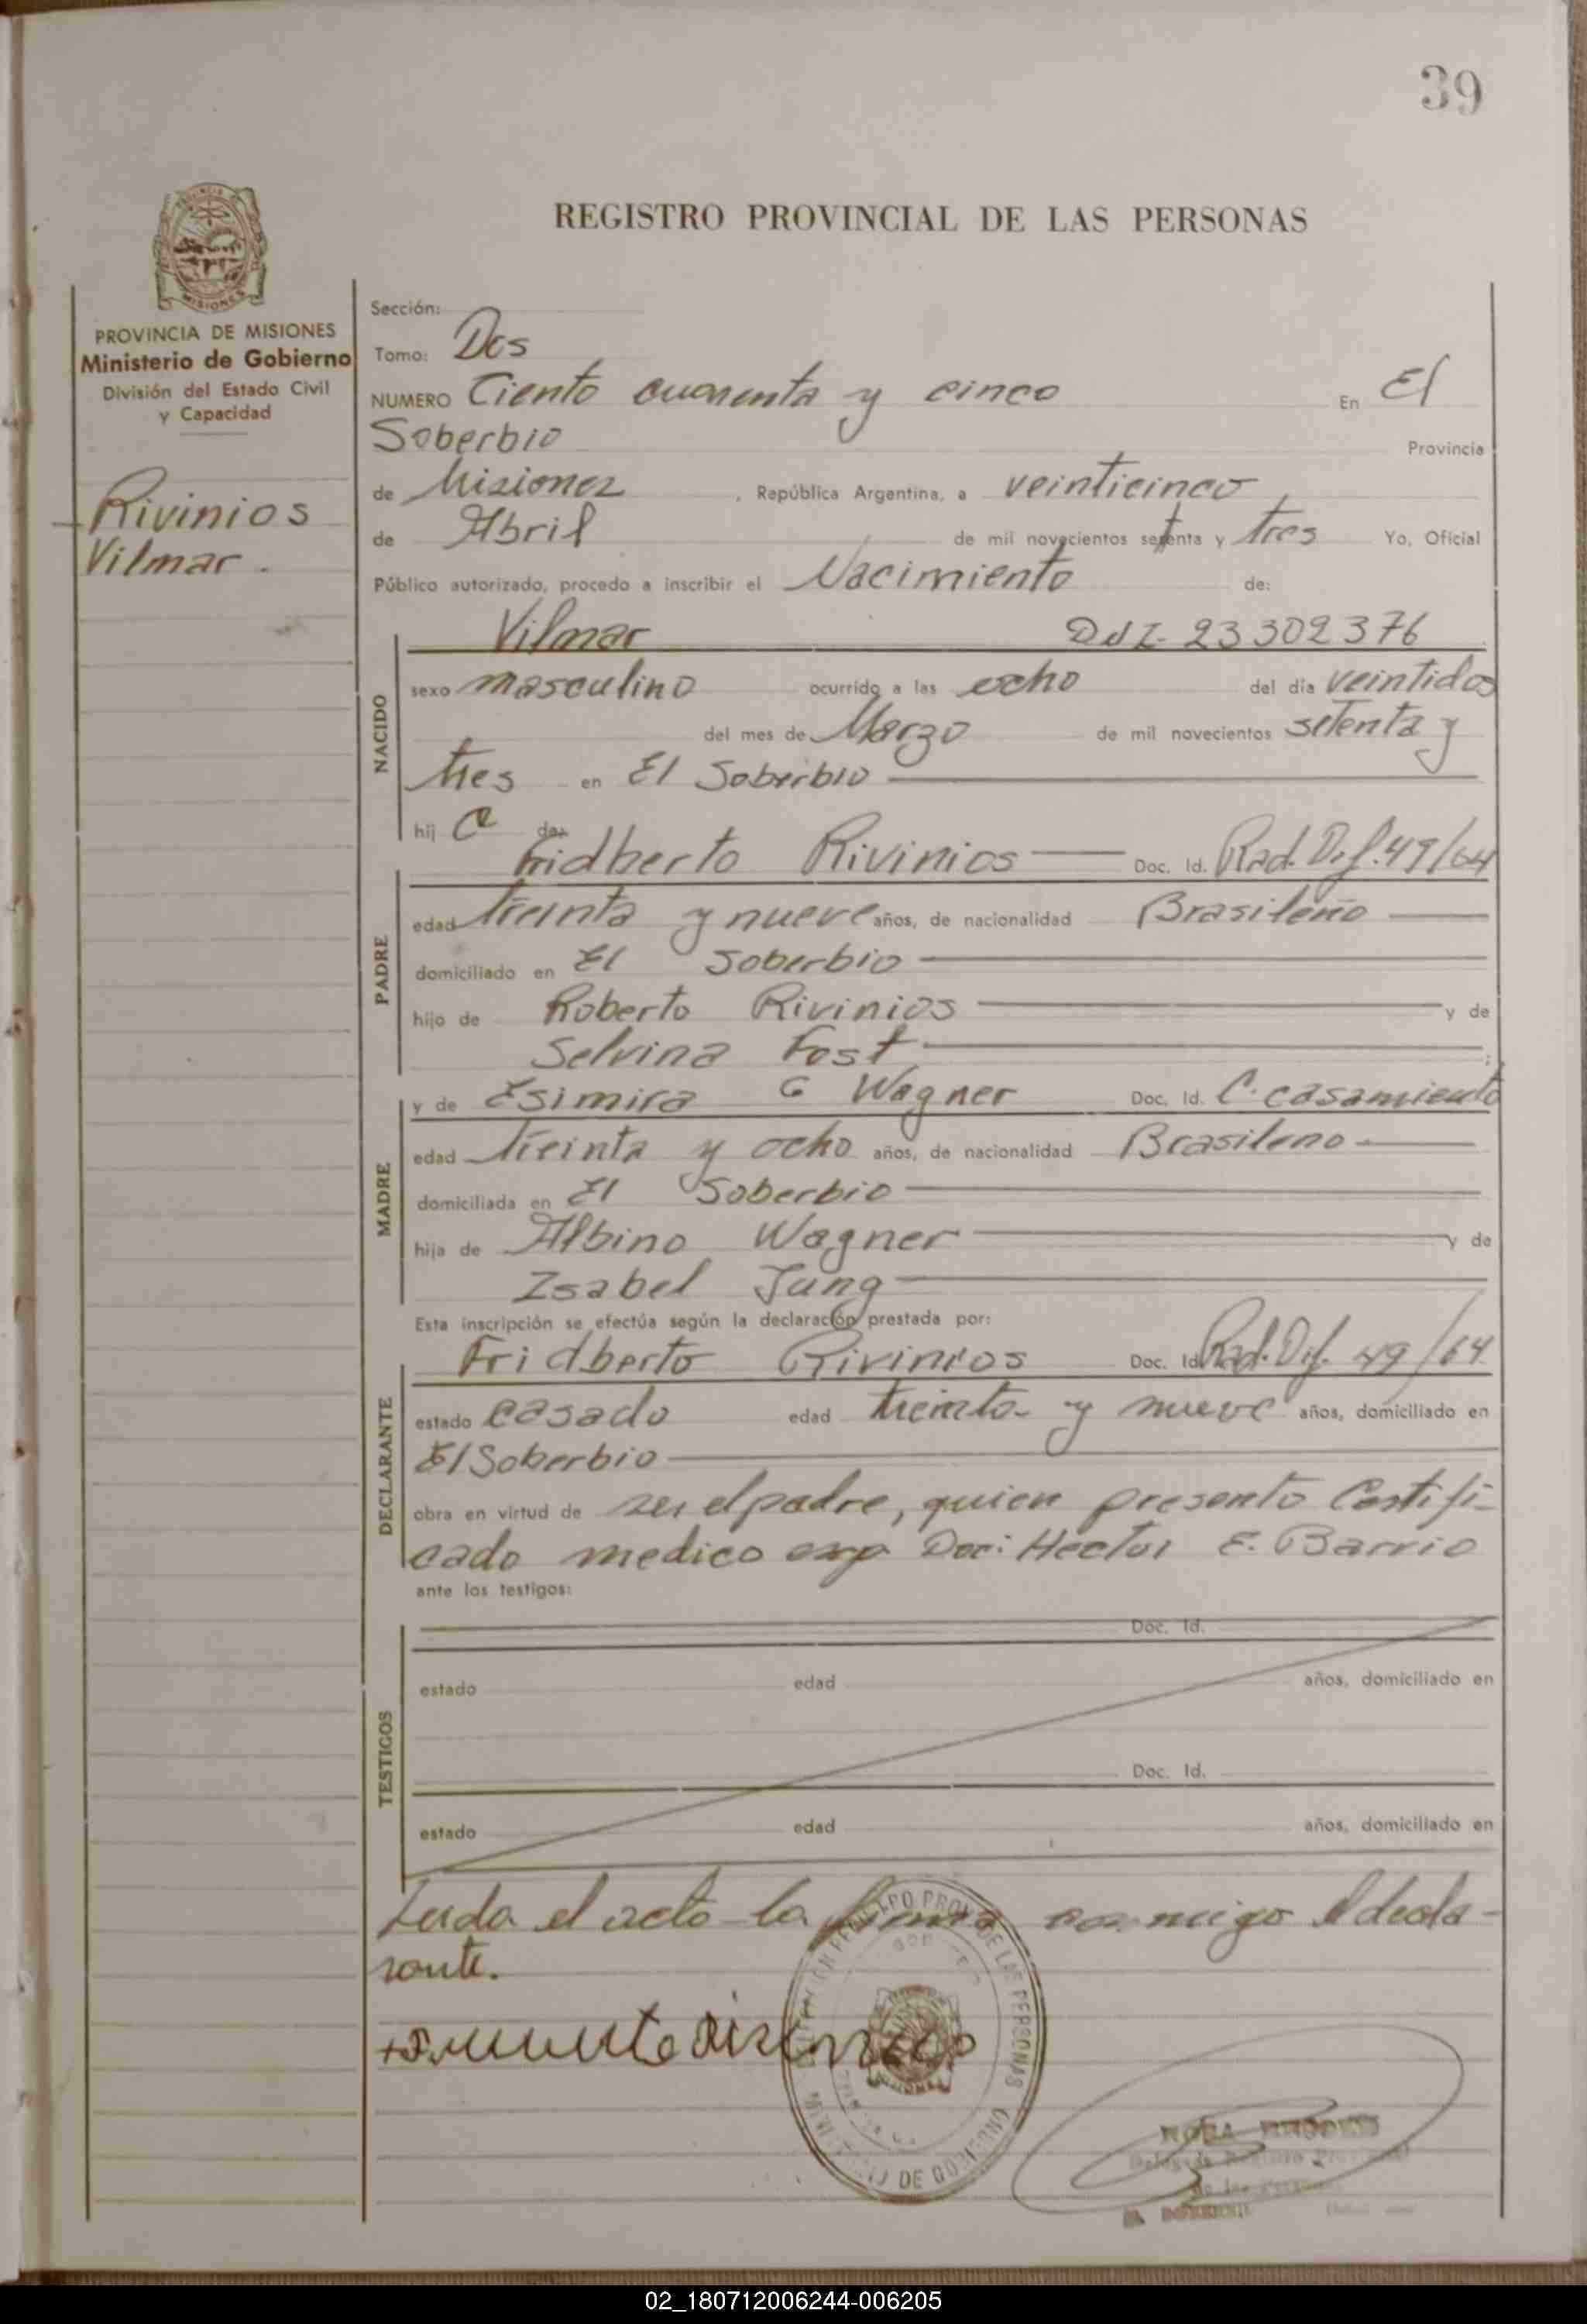 39
REGISTRO PROVINCIAL DE LAS PERSONAS
MISIONES
PROVINCIA DE MISIONES
Ministerio de Gobierno
División del Estado Civil
y Capacidad
Rivinios
Vilmar.
Sección:
Tomo: Dos
NUMERO Ciento cuarenta y cinco En El
Soberbio Provincia
de Misiones, República Argentina, a veinticinco,
de Abril de mil novecientos setenta y tres Yo, Oficial
Público autorizado, procedo a inscribir el Nacimiento de:
Vilmar DNI- 23302376
NACIDO
sexo masculino ocurrido a las ocho del día veintidos
del mes de Marzo de mil novecientos setenta y
tres en El Soberbio
hij o de:
PADRE
Fridberto Rivinios Doc. Id. Rad. Def. 49/64
edad treinta y nueve años, de nacionalidad Brasileño
domiciliado en El Soberbio
hijo de Roberto Rivinios y de
Selvina Fost ;
MADRE
y de Esimira G Wagner Doc. Id. C. casamiento
edad treinta y ocho años, de nacionalidad Brasileno
domiciliada en El Soberbio
hija de Albino Wagner y de
Isabel Jung
Esta inscripción se efectúa según la declaración prestada por:
DECLARANTE
Fridberto Rivinios Doc. Id. Rad. Def. 49/64
estado casado edad treinta y nueve años, domiciliado en
El Soberbio
obra en virtud de ser el padre, quien presento Certifi-
cado medico exp Doc: Hector E. Barrio
ante los testigos:
TESTIGOS
Doc. Id.
estado edad años, domiciliado en
Doc. Id.
estado edad años, domiciliado en
Leida el acto la firma conmigo el decla-
rante.
REGISTRO PROV. DE LAS PERSONAS
MISIONES
MINISTERIO DE GOBIERNO
Delegada Registro Provincial
de las Personas
02_180712006244-006205